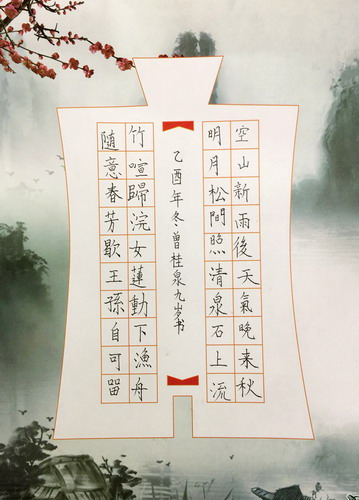 空山新雨後天氣晚来秋
明月松間照清泉石上流
乙酉年冬曾桂泉九岁书
竹喧歸浣女蓮動下漁舟
随意春芳歇王孫自可留